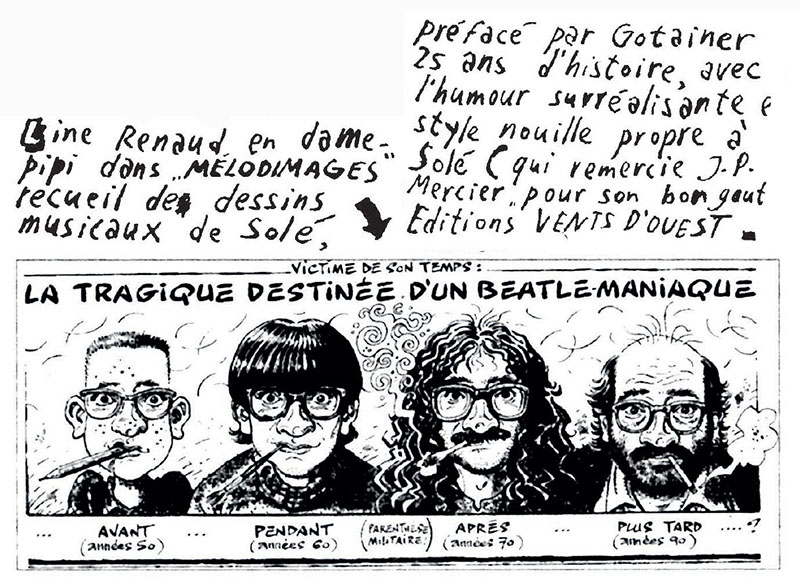 Line Renaud en dame-
pipi dans „MÉLODIMAGES"
recueil des dessins
musicaux de Solé,
préfacé par Gotainer
25 ans d'histoire, avec
l'humour surréalisante e
style nouille propre à
Solé (qui remercie J.P.
Mercier „pour son bon gout
Editions VENTS D'OUEST.
VICTIME DE SON TEMPS:
LA TRAGIQUE DESTINÉE D'UN BEATLE-MANIAQUE
... AVANT ... PENDANT (PARENTHÈSE MILITAIRE!) APRÉS ... PLUS TARD ....?
(années 50) (années 60) (années 70) (années 90)